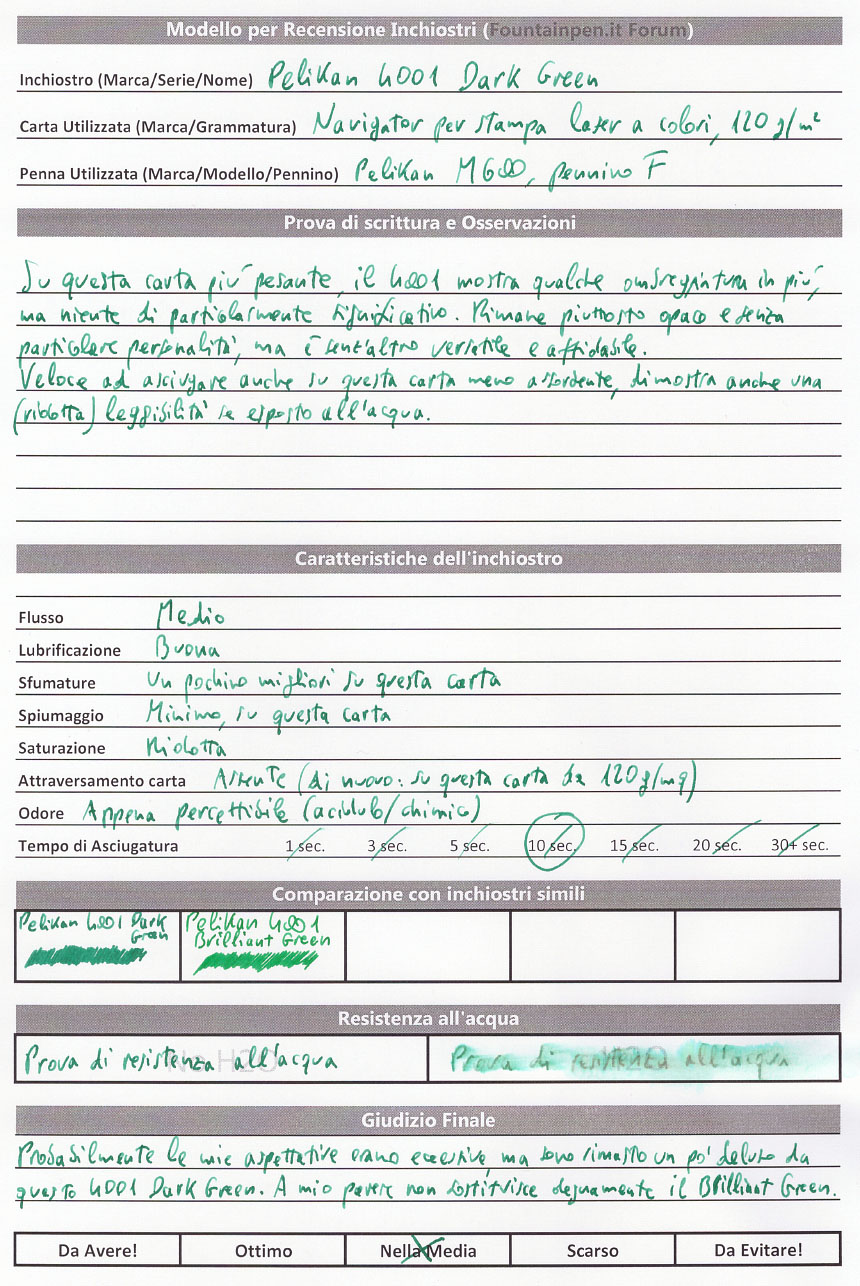 Modello per Recensione Inchiostri (Fountainpen.it Forum)
Inchiostro (Marca/Serie/Nome) Pelikan 4001 Dark Green
Carta Utilizzata (Marca/Grammatura) Navigator per stampa laser a colori, 120 g/m²
Penna Utilizzata (Marca/Modello/Pennino) Pelikan M600, pennino F
Prova di scrittura e Osservazioni
Su questa carta piu' pesante, il 4001 mostra qualche ombreggiatura in piu',
ma niente di particolarmente significativo. Rimane piuttosto opaco e senza
particolare personalita', ma è senz'altro versatile e affidabile.
Veloce ad asciugare anche su questa carta meno assorbente, dimostra anche una
(ridotta) leggibilita' se esposto all'acqua.
Caratteristiche dell'inchiostro
Flusso Medio
Lubrificazione Buona
Sfumature Un pochino migliori su questa carta
Spiumaggio Minimo, su questa carta
Saturazione Ridotta
Attraversamento carta Assente (di nuovo: su questa carta da 120g/mq)
Odore Appena percettibile (acidulo/chimico)
Tempo di Asciugatura 1 sec. 3 sec. 5 sec. 10 sec. 15 sec. 20 sec. 30+ sec.
Comparazione con inchiostri simili
Pelikan 4001 Dark Green
Pelikan 4001 Brilliant Green
Resistenza all'acqua
No H2O
Prova di resistenza all'acqua
H2O
Prova di resistenza all'acqua
Giudizio Finale
Probabilmente le mie aspettative erano eccessive, ma sono rimasto un po' deluso da
questo 4001 Dark Green. A mio parere non sostituisce degnamente il Brilliant Green.
Da Avere! Ottimo Nella Media Scarso Da Evitare!